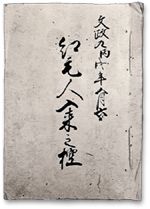 文政九丙戌年八月六
紅毛人入来之控